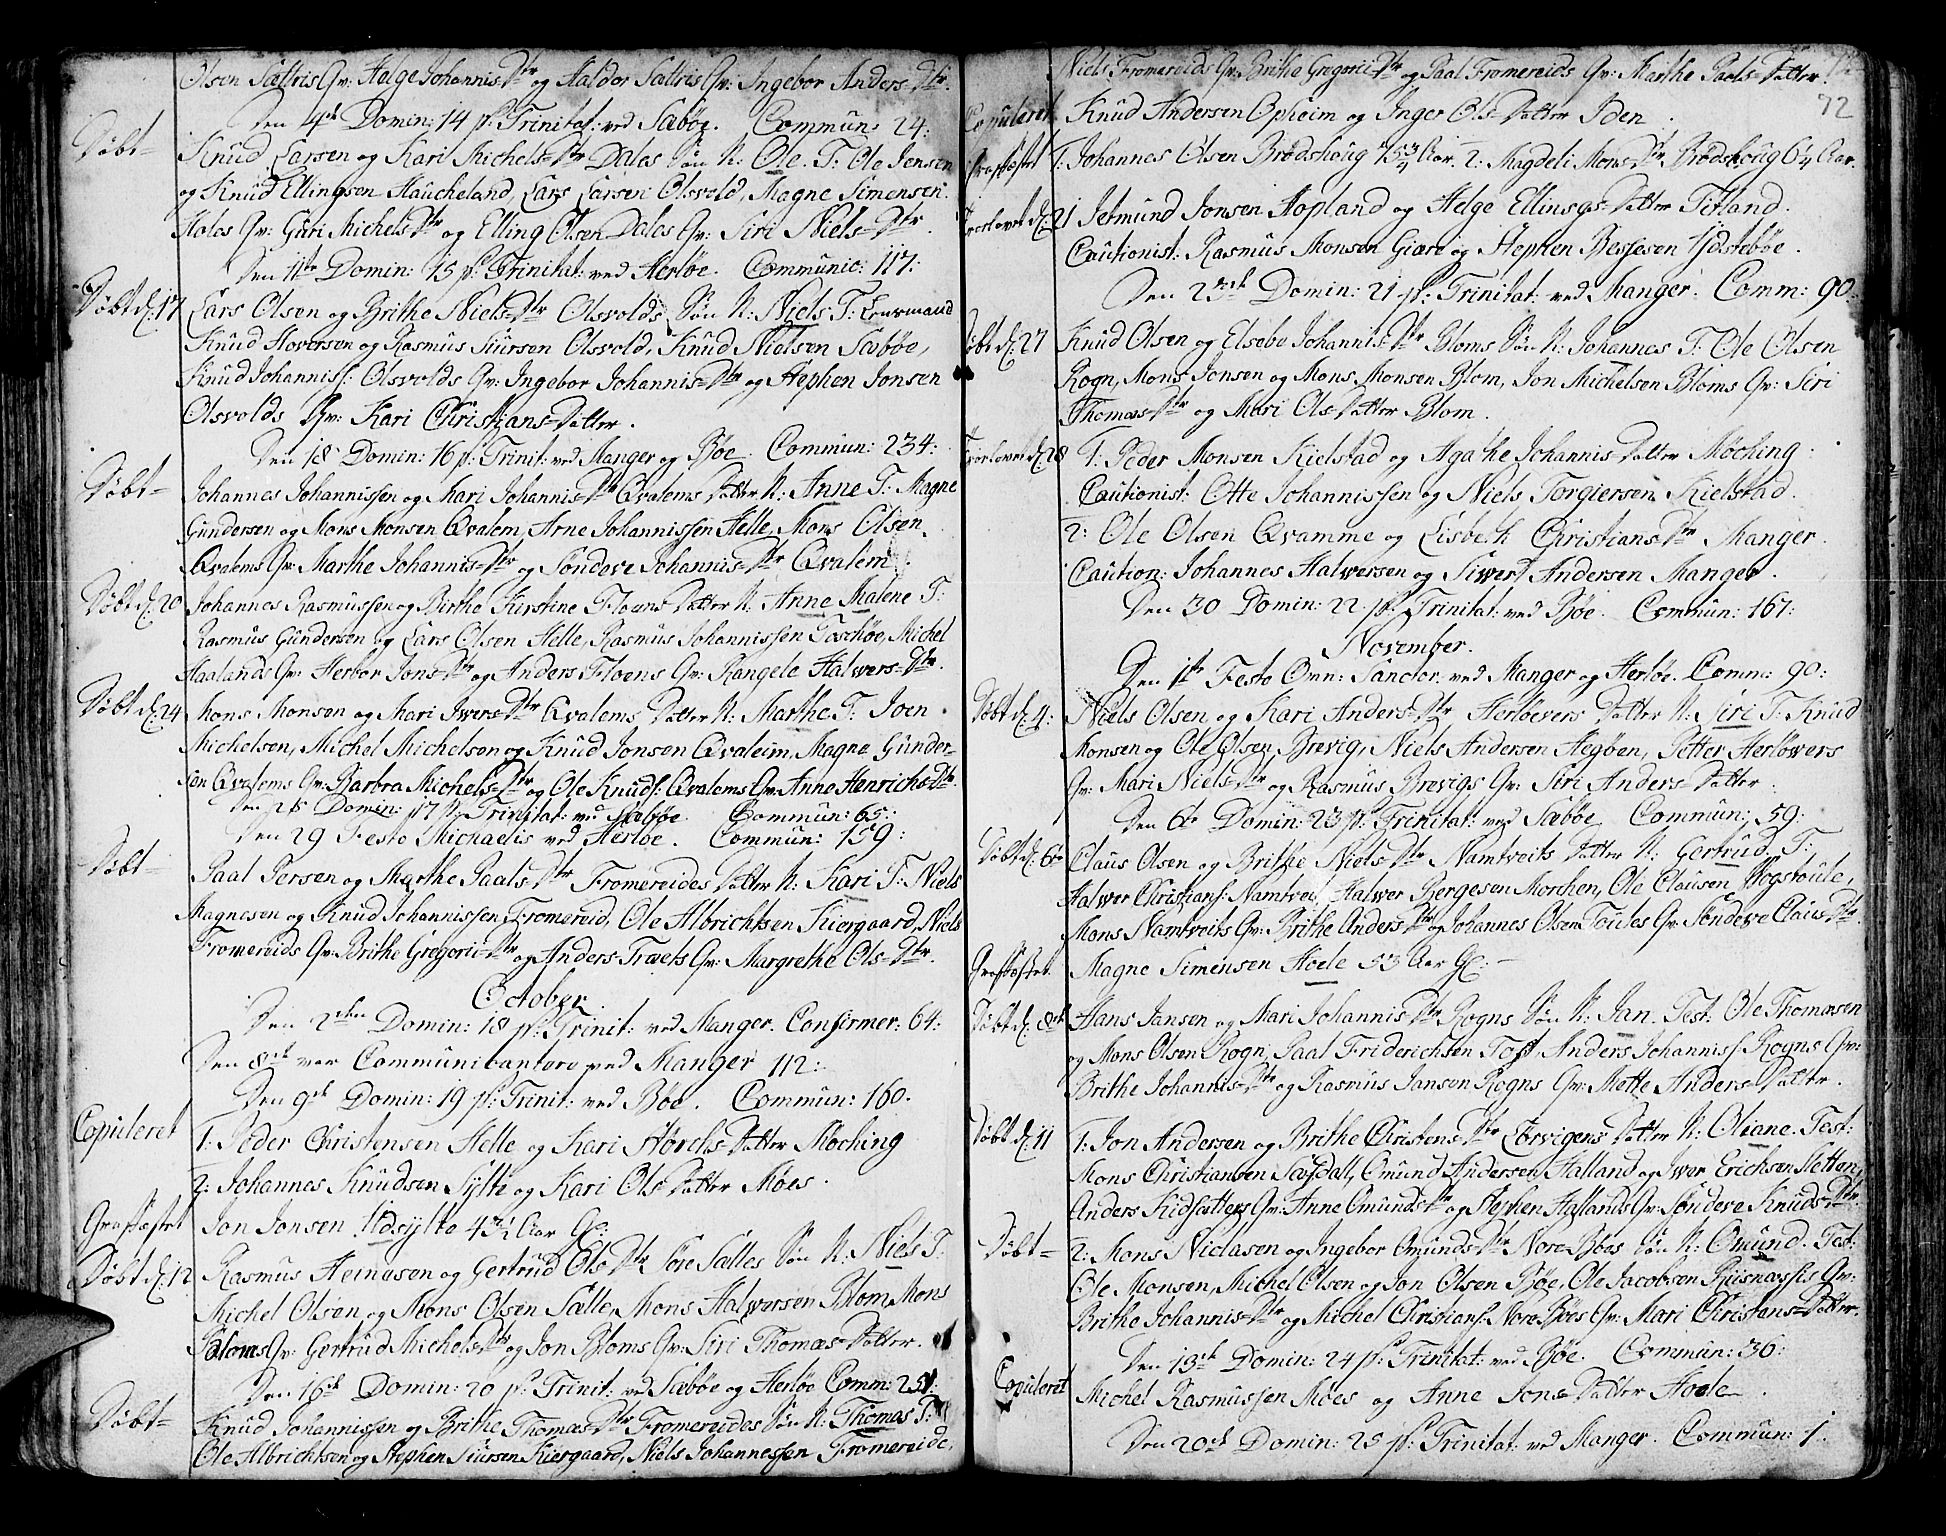 Olsen Sæltris Qv: Helge Johannis Dtr og Haldor Sæltris Qv: Ingebor Anders Dtr.
Den 4de Domin: 14 p: Trinitat: ved Sæbøe. Commun: 24:
Døbt-
Knud Larsen og Kari Michels Dtr Dales Søn N: Ole. T: Ole Jensen
og Knud Ellingsen Haucheland, Lars Larsen Olsvold, Magne Simensen
Holes Qv: Guri Michels Dtr og Elling Olsen Dales Qv: Siri Niels Dtr.
Den 11te Domin: 15 p: Trinitat: ved Herløe. Communic: 117:
Døbt d: 17
Lars Olsen og Brithe Niels Dtr Olsvolds Søn N: Niels T: Lensmand
Knud Hoversen og Rasmus Siursen Olsvold, Knud Nielsen Sæbøe,
Knud Johanniss: Olsvolds Qv: Ingebor Johannis Dtr og Stephen Jonsen
Olsvolds Qv: Kari Christians Datter.
Den 18 Domin: 16 p: Trinit: ved Manger og Bøe. Commun: 234:
Døbt-
Johannes Johannissen og Mari Johannis Dtr Qvalems Datter N: Anne T: Magne
Gundersen og Mons Monsen Qvalem, Arne Johannissen Helle, Mons Olsen
Qvalems Qv: Marthe Johannis Dtr og Søndeve Johannis Dtr Qvalem.
Døbt d: 20
Johannes Rasmussen og Birthe Kirstine Floens Datter N: Anne Malene T:
Rasmus Gundersen og Lars Olsen Helle, Rasmus Johannissen Toschøe, Michel
Haalands Qv: Herbor Jons Dtr og Anders Floens Qv: Rangele Halvers Dtr.
Døbt d: 24
Mons Monsen og Mari Ivers Dtr Qvalems Datter N: Marthe T: Joen
Michelsen, Michel Michelsen og Knud Jonsen Qvaleim, Magne Gunder-
sen Qvalems Qv: Barbra Michels Dtr og Ole Knuds: Qvalems Qv: Anne Henrichs Dtr.
Den 25 Domin: 17 p: Trinitat: ved Sæbøe. Commun: 65:
Den 29 Festo Michaelis ved Herløe. Commun: 159:
Døbt-
Paal Persen og Marthe Paals Dtr Fromereides Datter N: Kari T: Niels
Magnesen og Knud Johannissen Fromereid, Ole Albrichtsen Kiergaard, Niels
Fromereids Qv: Brithe Gregorii Dtr og Anders Træets Qv: Margrethe Ols Dtr.
October.
Den 2den Domin: 18 p: Trinit: ved Manger. Confirmer: 64:
Den 8de var Communicantere ved Manger 112:
Den 9de Domin: 19 p: Trinit: ved Bøe. Commun: 160.
Copuleret
1: Peder Christensen Helle og Kari Størchs Datter Møching
2: Johannes Knudsen Sylte og Kari Ols Datter Møes.
Grafføstet
Jon Jonsen Udsylte 4 3/4 Aar Gl:
Døbt d: 12
Rasmus Hemgsen og Gertrud Ols Dtr Søre Sælles Søn N: Niels T:
Michel Olsen og Mons Olsen Sælle, Mons Halversen Blom, Mons
Bloms Qv: Gertrud Michels Dtr og Jon Bloms Qv: Siri Thomæs Datter.
Den 16de Domin: 20 p: Trinit: ved Sæbøe og Herløe Comm: 251:
Døbt-
Knud Johannissen og Brithe Thomæs Dtr Fromereides Søn N: Thomas T:
Ole Albrichtsen og Stephen Siursen Kiergaard, Niels Johannessen Fromereide,
Niels Fromereids Qv: Brithe Gregorii Dtr og Paal Fromereids Qv: Marthe Paals Datter.
72
Copuleret
Knud Andersen Opheim og Inger Ols Datter Iden.
Grafføstet
1: Johannes Olsen Brødshoug 75 3/4 Aar, 2: Magdeli Mons Dtr Brødshoug 64 Aar.
Trorlovet d: 21
Jetmund Jonsen Hopland og Helge Ellings Datter Titland.
Cautionist: Rasmus Monsen Giære og Stephen Bessesen Udstebøe.
Den 23de Domin: 21 p: Trinitat: ved Manger. Comm: 90:
Døbt d: 27
Knud Olsen og Elsebe Johannis Dtr Bloms Søn N: Johannes T: Ole Olsen
Rogn, Mons Jonsen og Mons Monsen Blom, Jon Michelsen Bloms Qv: Siri
Thomæs Dtr og Mari Ols Datter Blom.
Trorlovet d: 28
1: Peder Monsen Kielstad og Agathe Johannis Datter Møching.
Cautionist: Otte Johannissen og Niels Torgiersen Kielstad.
2: Ole Olsen Qvamme og Lisbeth Christians Dtr Manger.
Caution: Johannes Halversen og Siwert Andersen Manger.
Den 30 Domin: 22 p: Trinitat: ved Bøe. Commun: 167:
November.
Den 1te Festo Omn: Sanctor. ved Manger og Herløe. Comm: 90:
Døbt d: 4:
Niels Olsen og Kari Anders Dtr Herløevers Datter N: Siri T: Knud
Monsen og Ole Olsen Brevig, Niels Andersen Hegøen, Petter Herløwers
Qv: Mari Niels Dtr og Rasmus Brevigs Qv: Siri Anders Datter.
Den 6te Domin: 23 p: Trinitat: ved Sæbøe. Commun: 59:
Døbt d: 6te
Claus Olsen og Brithe Niels Dtr Namtveits Datter N: Gertrud T:
Halver Christians: Namtveit, Halwer Bergesen Morchen, Ole Clausen Hogstoule,
Mons Namtveits Qv: Brithe Anders Dtr og Johannes Olsen Toules Qv: Søndeve Claus Dtr
Grafføstet
Magne Simensen Hoele 53 Aar Gl:
Døbt d: 8de
Hans Jansen og Mari Johannis Dtr Rogns Søn N: Jan. Test: Ole Thomæsen
og Mons Olsen Rogn, Paal Friderichsen Toft, Anders Johanniss: Rogns Qv:
Brithe Johannis Dtr og Rasmus Jansen Rogns Qv: Mette Anders Datter.
Døbt d: 11
1: Jon Andersen og Brithe Christens Dtr Lørvigens Datter N: Oliane. Test:
Mons Christiansen Sævdall, Omund Andersen Halland og Iver Erichsen Sletten,
Anders Kidsætters Qv: Anne Omunds Dtr og Stephen Hallands Qv: Søndeve Knuds Dtr
Døbt-
2: Mons Niclasen og Ingebor Omunds Dtr Nore Bøes Søn N: Omund. Test:
Ole Monsen, Michel Olsen og Jon Olsen Bøe, Ole Jacobsen Risnæssis Qv:
Brithe Johannis Dtr og Michel Christians: Nore Bøes Qv: Mari Christans Datter.
Den 13de Domin: 24 p: Trinitat: ved Bøe. Commun: 36:
Copuleret
Michel Rasmussen Møes og Anne Jons Datter Hoele.
Den 20de Domin: 25 p: Trinitat: ved Manger. Commun: 1.